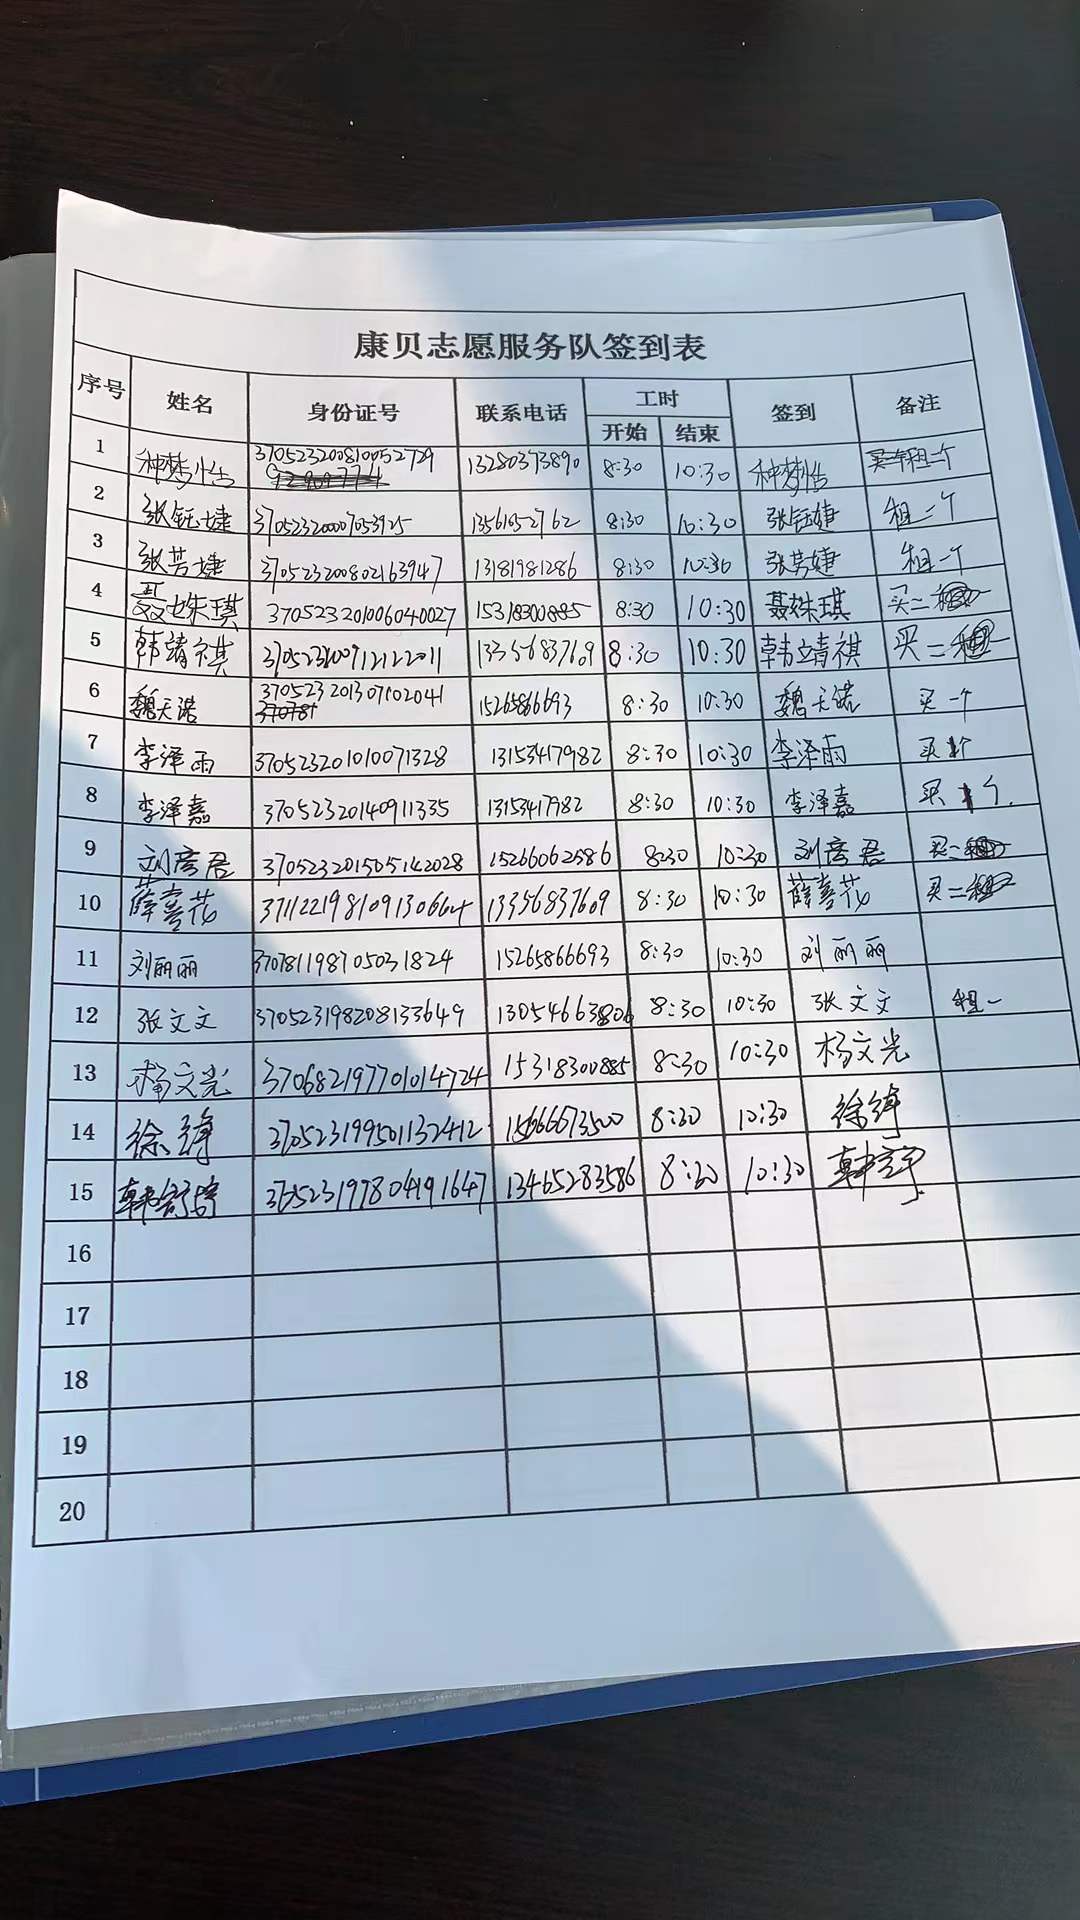 康贝志愿服务队签到表
序号 姓名 身份证号 联系电话 工时 签到 备注
开始 结束
1 种梦怡 370523200810052729 13280373890 8:30 10:30 种梦怡 租一个
2 张钰婕 37052320007053925 13561052762 8:30 10:30 张钰婕 租二个
3 张芳婕 370523200802163947 13181981286 8:30 10:30 张芳婕 租一个
4 聂姝琪 370523201006040027 15318300885 8:30 10:30 聂姝琪 买二
5 韩靖祺 13356837609 8:30 10:30 韩靖祺 买二
6 魏天诺 370523201307102041 15265866693 8:30 10:30 魏天诺 买一个
370781
7 李泽雨 370523201010071328 13153417982 8:30 10:30 李泽雨 买1个
8 李泽嘉 37052320140911335 13153417982 8:30 10:30 李泽嘉 买1个.
9 刘彦君 370523201505142028 15266062586 8:30 10:30 刘彦君 买二
10 薛喜花 371122198109130664 13356837609 8:30 10:30 薛喜花 买二
11 刘丽丽 370781198705031824 15265866693 8:30 10:30 刘丽丽
12 张文文 370523198208133649 13054663806 8:30 10:30 张文文 租一
13 杨文光 370682197701014724 15318300885 8:30 10:30 杨文光
14 370523199501132412 15666673500 8:30 10:30
15 370523197804191647 13465283586 8:30 10:30
16
17
18
19
20